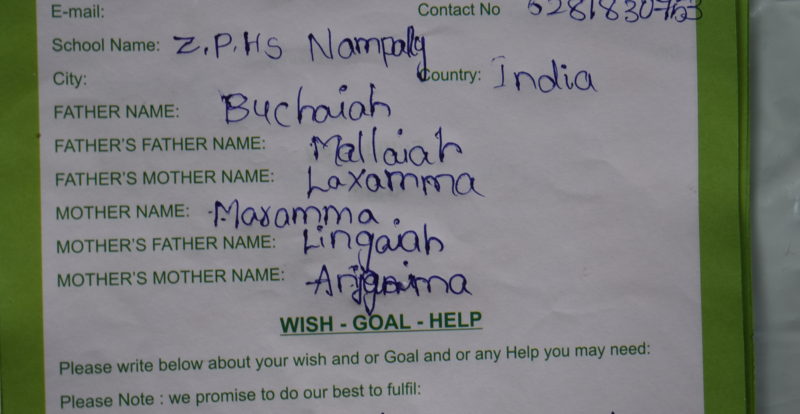 E-mail: Contact No 6281830763
School Name: Z.P.HS Nampally
City: Country: India
FATHER NAME: Buchaiah
FATHER'S FATHER NAME: Mallaiah
FATHER'S MOTHER NAME: Laxamma
MOTHER NAME: Maramma.
MOTHER'S FATHER NAME: Lingaiah
MOTHER'S MOTHER NAME:
WISH - GOAL - HELP
Please write below about your wish and or Goal and or any Help you may need:
Please Note : we promise to do our best to fulfil: